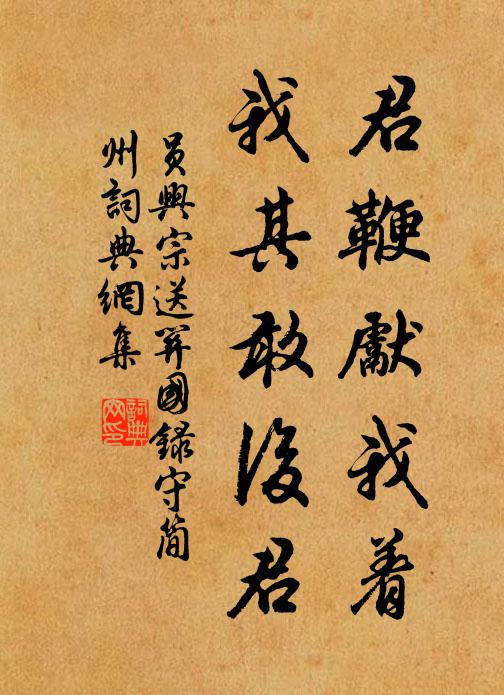 君鞭獻我着
我其敢後君
員興宗送國錄守簡
州詞典網集
詞典
网印